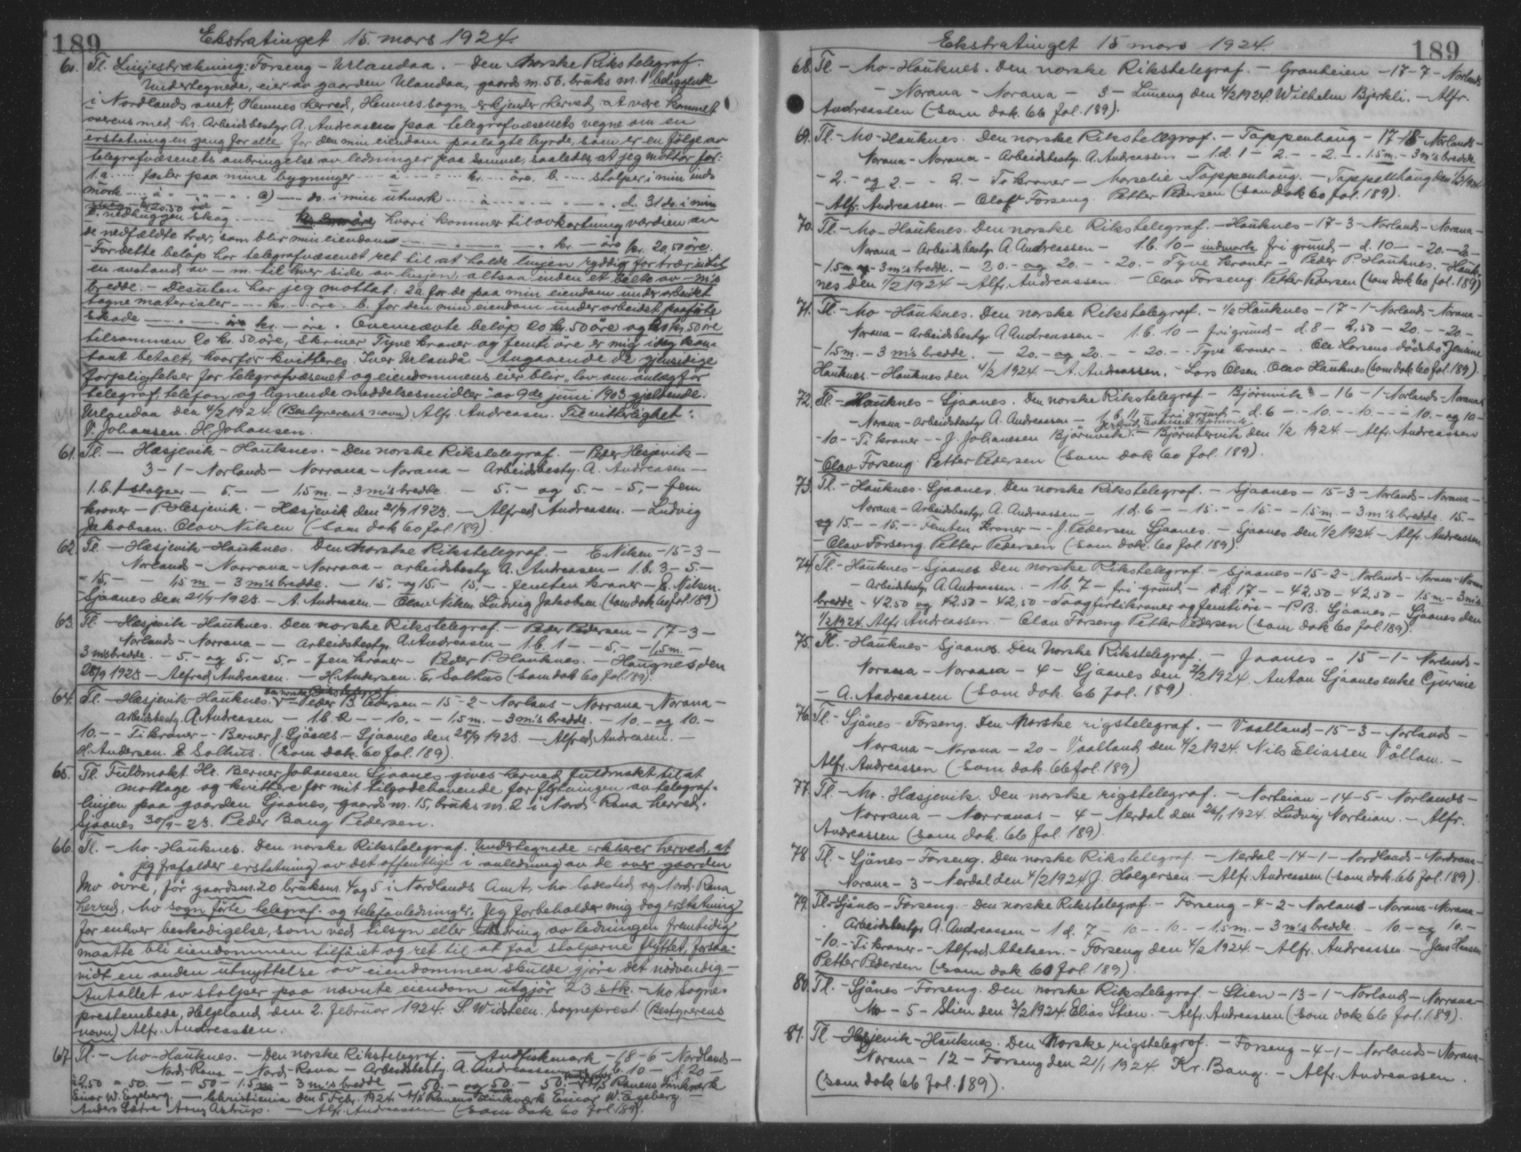 189
Ekstratinget 15. mars 1924.
60. Tl. Linjestrækning: Forseng - Urlandaa. - Den Norske Rikstelegraf.
Undertegnede, eier av gaarden Urlandaa, gaards nr. 56. bruks nr. 1 beliggende
i Nordlands amt, Hemnes herred, Hemnes sogn, erkjender herved, at være kommet
overens med hr. Arbeidsbestyr. A. Andreasen paa telegrafvæsenets vegne om en
erstatning en gang for alle for den min eiendom paalagte byrde, som er en følge av
telegrafvæsenets anbringelse av ledninger paa samme, saaledes at jeg mottar for:
1. a ... fæster paa mine bygninger ... a ... kr. ... øre. b. ... stolper i min ind
mark ... a ... c) ... do. i min utmark ... d. 31 do. i min
skog kr 20.50 øre
e. nedhuggen skog ... hvori kommer til avkortning værdien av
de nedfældte trær, som blir min eiendom ... kr. - øre kr. 20,50 øre.
For dette beløp har telegrafvæsenet ret til at holde linjen ryddig for trær indtil
en avstand av - m. til hver side av linjen, altsaa inden et belte av - m's
bredde. - Desuten har jeg mottat: 2 a for de paa min eiendom under arbeidet
tagne materialer - kr. - øre. b. for den min eiendom under arbeidet paaførte
skade ... kr. - øre. Ovennævnte beløp 20 kr. 50 øre og
tilsammen 20 kr. 50 øre, skriver Tyve kroner og femti øre er mig idag kon-
tant betalt, hvorfor kvitteres. Iver Urlandå. - Angaaende de gjensidige
forpligtelser for telegrafvæsenet og eiendommens eier blir "lov om anlæg for
telegraf, telefon og lignende meddelelsesmidler" av 9de juni 1903 gjældende.
Urlandaa den 4/2 1924 (Bestyrerens navn) Alf. Andreassen. Til vitterlighet:
P. Johansen. H. Johansen.
61. Tl. - Hæsjevik - Hauknes. - Den norske Rikstelegraf. - Peder Hesjevik -
3 - 1 - Norland - Norrana - Norana - Arbeidsbesty. A. Andreasen -
1. b. 1 stolper - 5. - - 1,5 m - 3 m's bredde. - 5. - og 5. - - 5, - Fem
kroner - P. Hesjevik. - Hæsjevik den 21/9 1923. - Alfred Andreasen. - Ludvig
Jakobsen. Olav Nilsen (som dok 60 fol. 189)
62. Tl. - Hæsjevik - Hauknes. Den Norske Rikstelegraf. - E. Nilsen - 15 - 3 -
Norlands - Norrana - Norrana - arbeidsbesty A. Andreasen - 1. b. 3 - 5 -
- 15, - - 1,5 m - 3 m's bredde. - 15. - og 15 - 15, - Femten kroner - E. Nilsen.
Sjaanes den 21/9 - 1923. - A. Andreasen. - Olav Nilsen Ludvig Jakobsen (som dok 60 fol. 189)
63. Tl. - Hesjevik - Hauknes. Den norske Rikstelegraf. - Peder Pedersen - 17 - 3 -
Norlands - Norrana - - Arbeidsbestyr. A. Andreasen - 1 b. 1 - - 5, - - 1,5 m. -
3 m's bredde. - 5. - og 5. - 5, - Fem kroner - Peder P. Hauknes. - Haugnes den
28/9 1923 - Alfred Andreasen. - H. Andersen. E. Solhus (som dok 60 fol. 189)
64. Tl. - Hæsjevik - Hauknes. Den norske Rikstelegraf. - Peder B. Pedersen - 15 - 2 - Norlans - Norrana - Norana -
Arbeidsbesty. A. Andreasen - 1 b. 2 - - 10. - - 1,5 m. - 3 m's bredde. - 10. - og 10. -
10. - - Ti kroner - - Berner J. Sjånes - Sjaanes den 28/9 1923. - Alfred Andreasen. -
H. Andersen. E. Solhus. (som dok. 60 fol. 189)
65. Tl. Fuldmakt. Hr. Berner Johansen Sjaanes gives herved fuldmakt til at
mottage og kvittere for mit tilgodehavende for flytningen av telegraf-
linjen paa gaarden Sjaanes, gaards nr. 15, bruks nr. 2 i Nord Rana herred.
Sjaanes 30/9 - 23. Peder Bang Pedersen.
66. Tl. - Mo - Hauknes. Den norske Rikstelegraf. Undertegnede erklærer herved, at
jeg frafalder erstatning av det offentlige i anledning av de over gaarden
Mo övre, för gaardsnr. 20 bruksnr. 4 og 5 i Nordlands Amt, Mo ladested og Nord-Rana
herred, Mo sogn förte telegraf- og telefonledninger. Jeg forbeholder mig dog erstatning
for enhver beskadigelse, som ved tilsyn eller utbedring av ledningen fremtidig
maatte bli eiendommen tilføiet og ret til at faa stolperne flyttet, forsaa-
vidt en anden utnyttelse av eiendommen skulde gjöre det nödvendig -
Antallet av stolper paa nævnte eiendom utgjør 23 stk. - Mo Sogne-
prestembede, Helgeland den 2. februar 1924. S. Widsteen. sogneprest (Bestyrerens
navn) Alf. Andreassen.
67. Tl. - Mo - Hauknes. - Den norske Rikstelegraf. - Andfiskmark - 68 - 6 - Nordlands -
Nord-Rana - Nord-Rana - Arbeidsbesty A. Andreassen - 1. b. 10 - d. 20 -
2,50 = 50. - - 50 - 1.5 m - 3 m's bredde - 50. - og 50. - 50. - A/S Ranens Zinkverk
Einar W. Egeberg. - Christiania den 5 Febr. 1924. A/S Ranens Zinkverk Einar W. Egeberg. -
Anders Sætre Arny Astrup. - Alfr. Andreassen (som dok 60 fol. 189)
Ekstratinget 15 mars 1924.
189
68. Tl - Mo - Hauknes. Den norske Rikstelegraf. - Granheien - 17 - 7 - Norlands
- Norana - Norana - 3 - Limeng den 4/2 1924. Wilhelm Bjerkli. - Alfr.
Andreassen (som dok. 66 fol. 189).
69. Tl - Mo - Hauknes. Den norske Rikstelegraf. - Tappenhaug - 17 - 8 - Norlands -
Norana - Norana - Arbeidsbesty. A. Andreassen - 1. d. 1 - 2. - - 2. - - 1.5 m. - 3 m's bredde
- 2. - og 2. - - 2. - To kroner - Morselie Tappenhaug. - Tappenhaug den 1/2 1924
- Alf. Andreassen. - Olaf Forseng Petter Pedersen (som dok 60 fol. 189).
70. Tl. - Mo - Hauknes. Den norske Rikstelegraf. - Hauknes - 17 - 3 - Norland - Norana -
Norana - Arbeidsbesty. A. Andreassen - 1. b. 10 - indmark fri grund - d. 10 - - 20 - 2 -
- 1.5 m og 3 m's bredde. - 20. - og 20. - - 20. - Tyve kroner - Peder P. Hauknes. - Hauk-
nes den 1/2 1924 - Alf. Andreassen. - Olav Forseng. Petter Pedersen (som dok 60 fol. 189)
71. Tl. - Mo - Hauknes. Den norske Rikstelegraf. - ½ Hauknes - 17 - 1 - Norlands - Norana -
Norana - Arbeidsbesty. A. Andreassen - 1. b. 10 - fri grund - d. 8 - 2.50 - 20. - - 20. -
- 1.5 m. - 3 m's bredde. - 20. - og 20. - - 20. - Tyve kroner - Ole Larsens dødsbo Jensine
Hauknes - Hauknes den 4/2 1924 - A. Andreassen. - Lars Olsen. Olav Hauknes (som dok 60 fol. 189)
72. Tl. - Hauknes - Sjaanes. Den norske Rikstelegraf. - Björnvik - 16 - 1 - Norlands - Norana
- Norana - Arbeidsbesty A. Andreassen - 1. b. 11 - fri grund - d. 6 - - 10. - - 10 - - - 10. - og 10 -
- 10. - Ti kroner - J. Johanesen Björnvik - Björnbervik den 1/2 1924 - Alf. Andreassen
- Olav Forseng. Petter Pedersen (som dok 60 fol. 189).
73. Tl. - Hauknes - Sjaanes. Den norske Rikstelegraf. - Sjaanes - 15 - 3 - Norlands - Norana -
Norana - Arbeidsbesty. A. Andreassen - 1. d. 6 - - 15. - - 15. - - 1.5 m - 3 m's bredde. 15. -
og 15 - - 15. - Femten Kroner - J. Pedersen Sjaanes. - Sjaanes den 1/2 1924 - Alf. Andreassen
- Olav Forseng Petter Pedersen (som dok. 60 fol 189)
74. Tl. - Hauknes - Sjaanes den norske Rikstelegraf. - Sjaanes - 15 - 2 - Norland - Norana - Norana
- Arbeidsbesty. A. Andreassen - 1 b. 7 - fri grund - d. 17 - - 42.50 - 42.50 - 1.5 m - 3 m's
bredde - 42.50 og 42.50 - 42,50 - Toogførti kroner og femti øre - P. B. Sjaanes - Sjaanes den
1/2 1924. Alf. Andreassen. - Olav Forseng Petter Pedersen (som dok. 60 fol. 189).
75. Tl. - Hauknes - Sjaanes. Den Norske Rikstelegraf. - Jaanes - 15 - 1 - Norlands -
Norana - Norana - 4 - Sjaanes den 3/2 1924 Anton Sjaanes enke Gjurine
- A. Andreassen (som dok. 66 fol. 189)
76. Tl. - Sjånes - Forseng. Den Norske rigstelegraf. - Vaalland - 15 - 3 - Norlands -
Norana - Norana - 20 - Vaalland den 4/2 1924. Nils Eliassen Vållan. -
Alfr. Andreassen (som dok. 66 fol. 189)
77. Tl. - Mo. Hæsjevik. Den norske rigstelegraf. - Norheian - 14 - 5 - Norlands -
Norrana - Norranas - 4 - Nerdal den 26/1 1924. Ludvig Norheian. - Alfr.
Andreassen (som dok. 66 fol. 189)
78. Tl. - Sjånes - Forseng. Den norske Rikstelegraf - Nerdal - 14 - 1 - Nordlands - Nordrana -
Norana - 3 - Nerdal den 4/2 1924 J. Holgersen. - Alfr. Andreassen (som dok. 66 fol. 189).
79. Tl. - Sjånes - Forseng. Den norske Rikstelegraf - Forseng - 4 - 2 - Norland - Norana - Norana -
Arbeidsbesty. A. Andreassen - 1 d. 7 - 10 - - 10. - - 1.5 m - 3 m's bredde - 10. - og 10. -
- 10. - Ti kroner. - Alfred Abelsen. - Forseng den 4/2 1924. - Alfr. Andreassen - Jens Hansen
Petter Pedersen (som dok 60 fol. 189).
80. Tl. - Sjånes - Forseng. Den norske Rikstelegraf. - Stien - 13 - 1 - Norland - Norrana -
Mo - 5 - Stien den 3/2 1924 Elias Stien. - Alfr. Andreassen (som dok. 66 fol. 189).
81. Tl - Hesjevik - Hauknes. Den Norske rigstelegraf. - Forseng - 4 - 1 - Norland - Norana -
Norana - 12 - Forseng den 21/1 1924 Kr. Bang. - Alf. Andreassen.
(som dok 66 fol. 189).